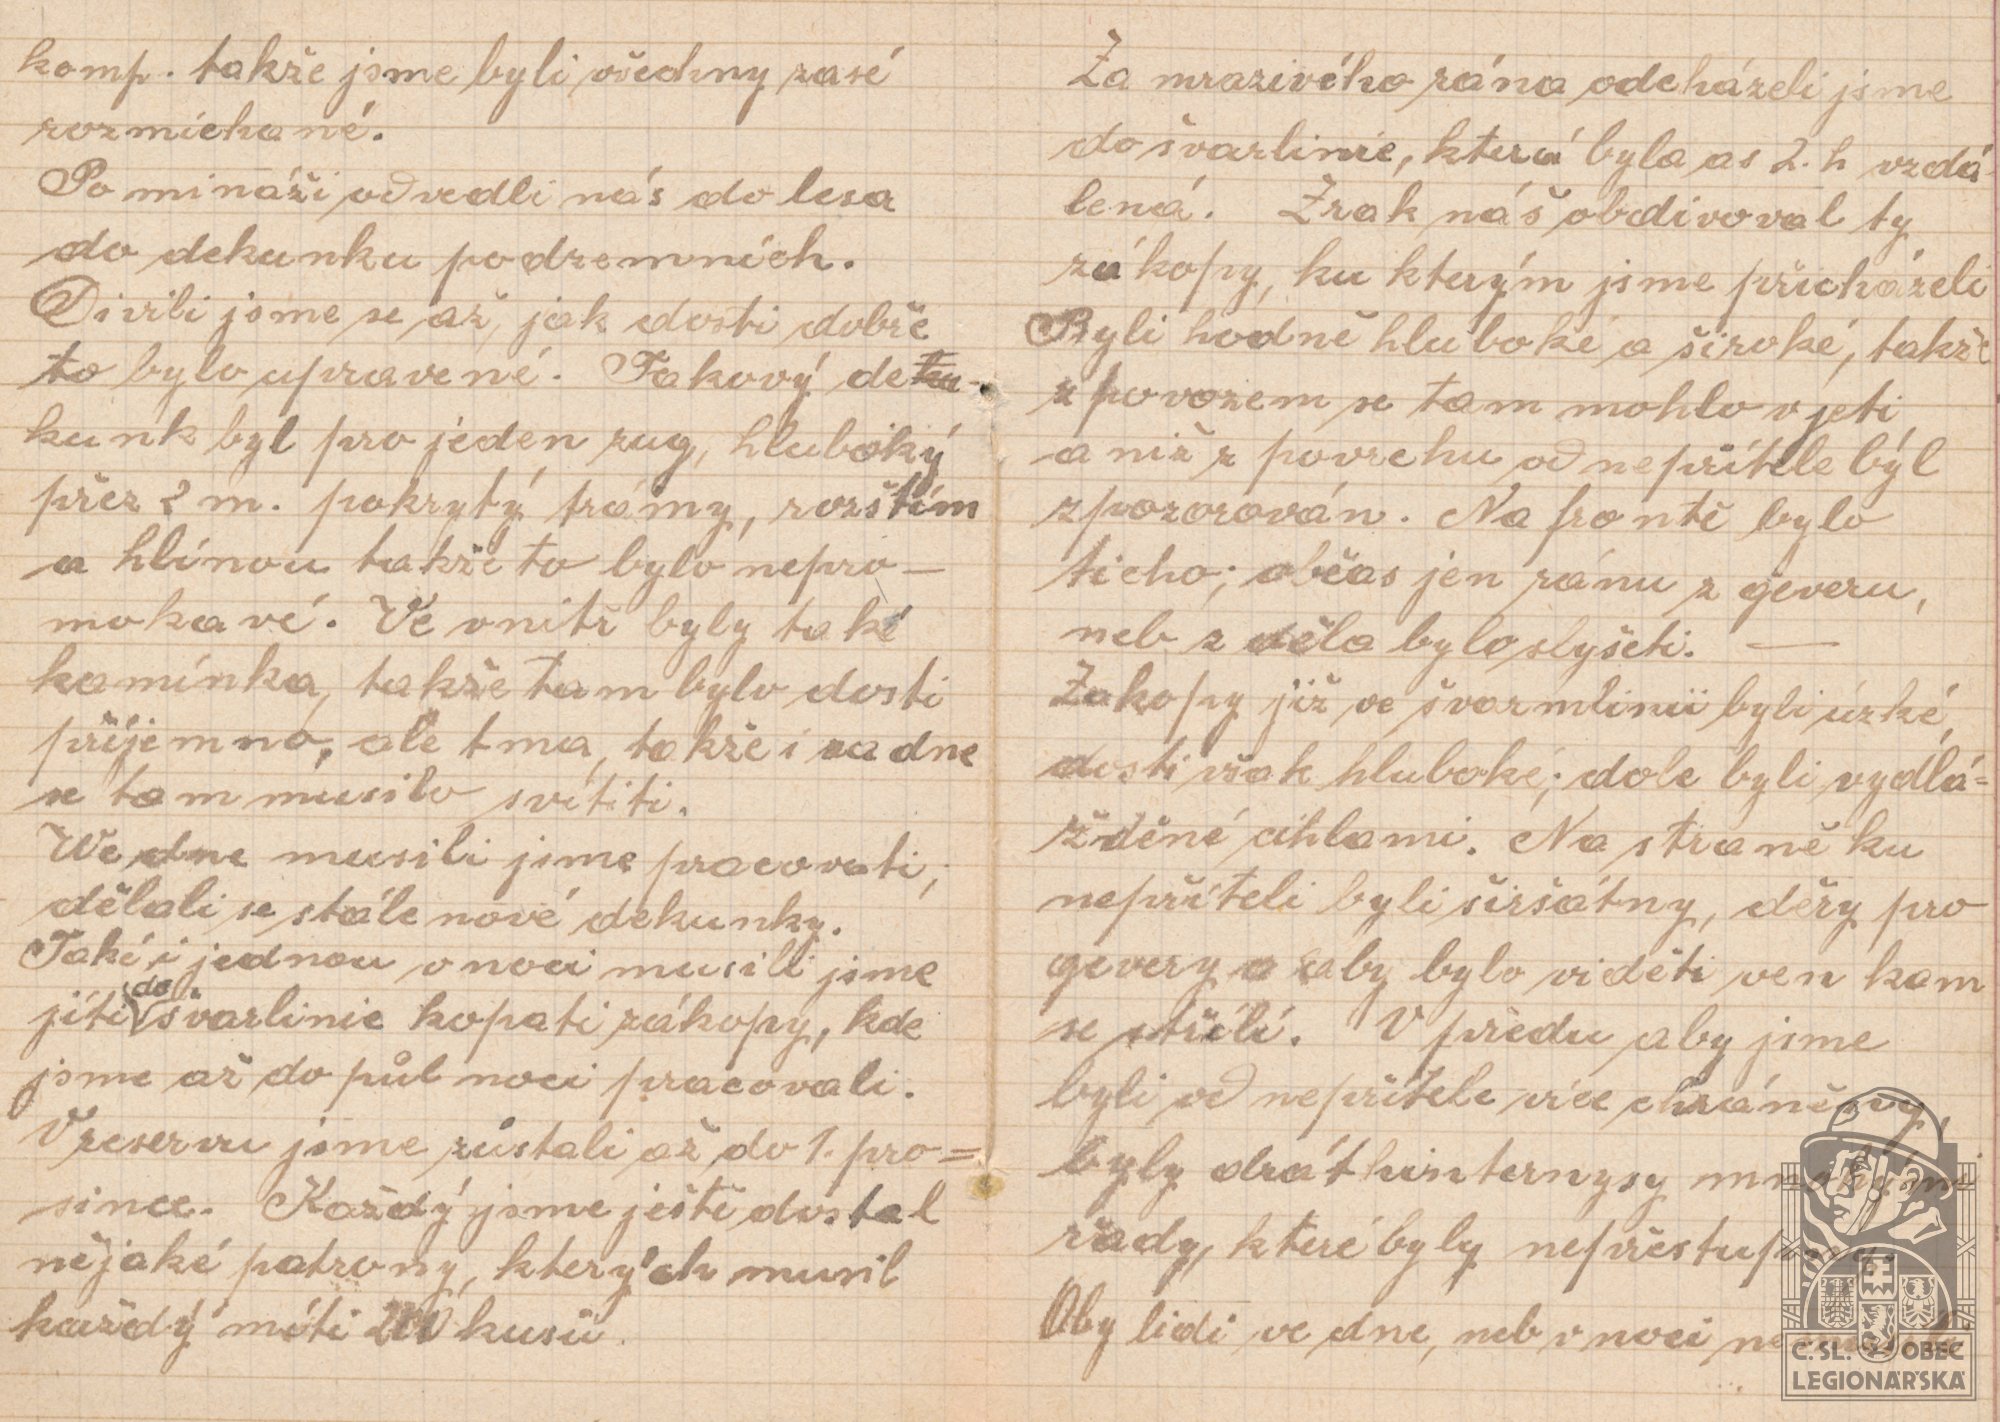 komp. takže jsme byli všechny zasé
rozmíchané.
Po mináži odvedli nás do lesa
do dekunku podzemních.
Divili jsme se až, jak dosti dobře
to bylo upravené. Takový de
kunk byl pro jeden zug, hluboký
přez 2 m. pokrytý trámy, rozštím
a hlínou takže to bylo nepro-
mokavé. Ve vnitř byly také
kamínka, takže tam bylo dosti
příjemno, ale tma, takže i za dne
se tam musilo svítiti.
We dne musili jsme pracovati,
dělali se stále nové dekunky.
Také i jednou v noci musili jsme
jíti do švarlinie kopati zákopy, kde
jsme až do půl noci pracovali.
V reservu jsme zůstali až do 1. pro=
since. Každý jsme ještě dostal
nějaké patrony, kterých musil
každý míti 200 kusů.
Za mrazivého rána odcházeli jsme
do švarlinie, která byla as 2. h vzdá-
lená. Zrak náš obdivoval ty
zákopy, ku kterým jsme přicházeli
Byli hodně hluboké a široké, takže
z povozem se tam mohlo vjeti
aniž z povrchu od nepřítele býl
zpozorován. Na frontě bylo
ticho; občas jen ránu z geveru,
neb z děla bylo slyšeti. —
Zákopy již ve švarmlinii byli úzké,
dosti však hluboké; dole byli vydlá=
žděné cihlami. Na straně ku
nepříteli byli širšátny, děry pro
gevery a aby bylo viděti ven kam
se střílí. V předu aby jsme
byli od nepřítele více chráněny,
byly dráthinternysy mnohými
řady, které byly nepřestupny.
Oby lidi ve dne, neb v noci
Č. SL. OBEC
LEGIONÁŘSKÁ